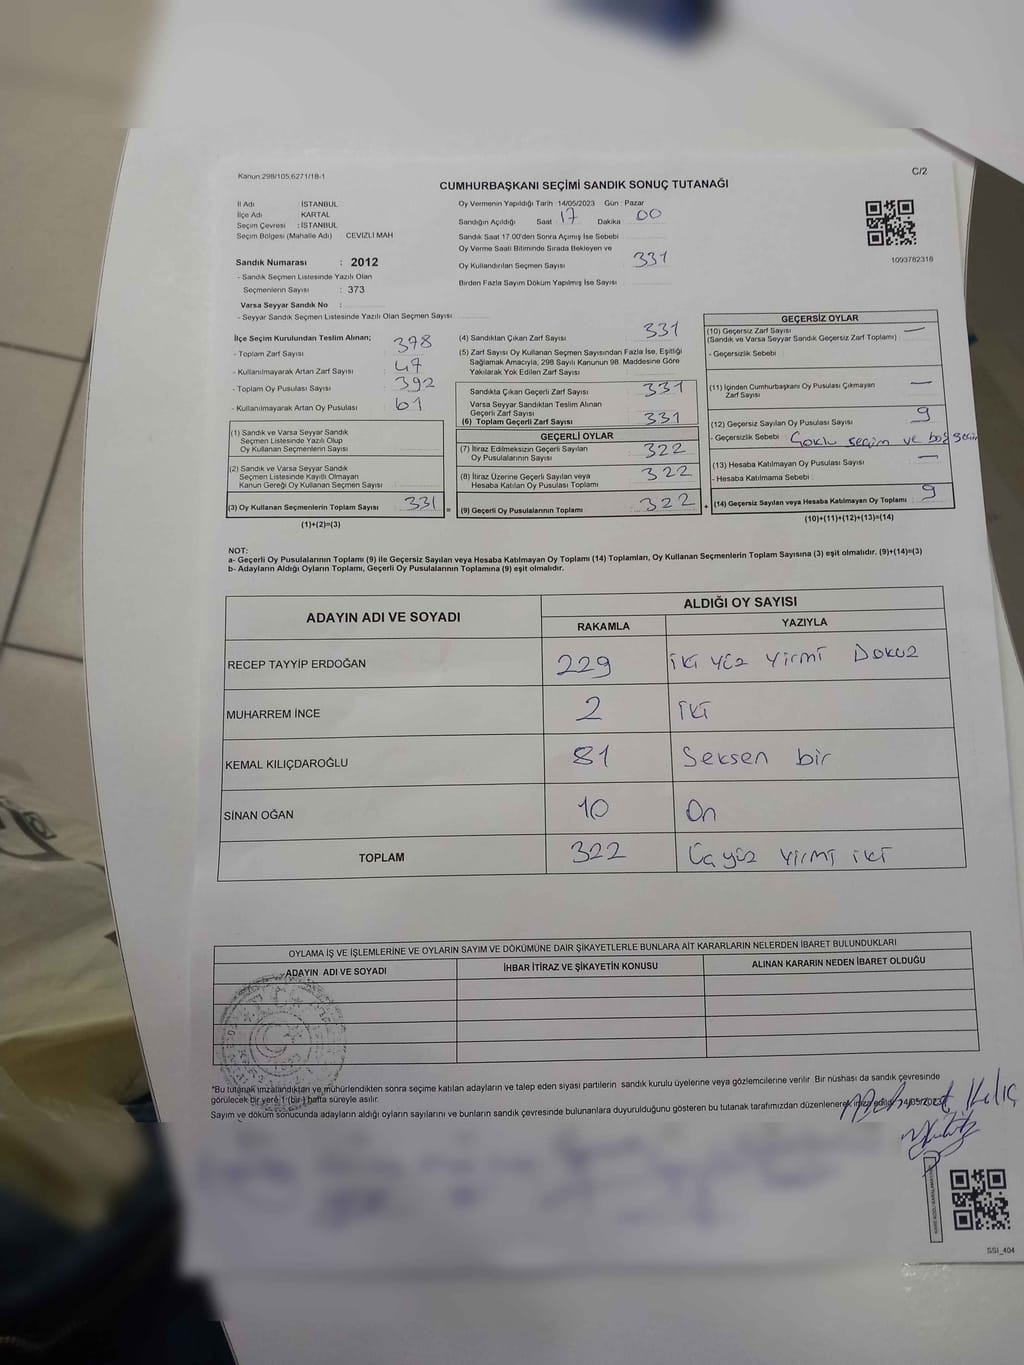 Kanun 298/105,6271/18-1
C/2
CUMHURBAŞKANI SEÇİMİ SANDIK SONUÇ TUTANAĞI
İl Adı İSTANBUL
İlçe Adı KARTAL
Seçim Çevresi : İSTANBUL
Seçim Bölgesi (Mahalle Adı) CEVİZLİ MAH.
Oy Vermenin Yapıldığı Tarih : 14/05/2023 Gün : Pazar
Sandığın Açıldığı Saat : 17 Dakika : 00
Sandık Saat 17.00'den Sonra Açımış İse Sebebi
Oy Verme Saati Bitiminde Sırada Bekleyen ve
Oy Kullandırılan Seçmen Sayısı : 331
Birden Fazla Sayım Döküm Yapılmış İse Sayısı :
1093782318
Sandık Numarası : 2012
- Sandık Seçmen Listesinde Yazılı Olan
Seçmenlerin Sayısı : 373
Varsa Seyyar Sandık No :
- Seyyar Sandık Seçmen Listesinde Yazılı Olan Seçmen Sayısı:
İlçe Seçim Kurulundan Teslim Alınan;
- Toplam Zarf Sayısı : 378
- Kullanılmayarak Artan Zarf Sayısı : 47
- Toplam Oy Pusulası Sayısı : 392
- Kullanılmayarak Artan Oy Pusulası : 61
(1) Sandık ve Varsa Seyyar Sandık
Seçmen Listesinde Yazılı Olup
Oy Kullanan Seçmenlerin Sayısı :
(2) Sandık ve Varsa Seyyar Sandık
Seçmen Listesinde Kayıtlı Olmayan
Kanun Gereği Oy Kullanan Seçmen Sayısı :
(3) Oy Kullanan Seçmenlerin Toplam Sayısı : 331
(1)+(2)=(3)
(4) Sandıktan Çıkan Zarf Sayısı : 331
(5) Zarf Sayısı Oy Kullanan Seçmen Sayısından Fazla İse, Eşitliği
Sağlamak Amacıyla, 298 Sayılı Kanunun 98. Maddesine Göre
Yakılarak Yok Edilen Zarf Sayısı :
Sandıkta Çıkan Geçerli Zarf Sayısı : 331
Varsa Seyyar Sandıktan Teslim Alınan
Geçerli Zarf Sayısı
(6) Toplam Geçerli Zarf Sayısı : 331
GEÇERLİ OYLAR
(7) İtiraz Edilmeksizin Geçerli Sayılan
Oy Pusulalarının Sayısı : 322
(8) İtiraz Üzerine Geçerli Sayılan veya
Hesaba Katılan Oy Pusulası Toplamı : 322
= (9) Geçerli Oy Pusulalarının Toplamı : 322 +
GEÇERSİZ OYLAR
(10) Geçersiz Zarf Sayısı : —
(Sandık ve Varsa Seyyar Sandık Geçersiz Zarf Toplamı)
- Geçersizlik Sebebi :
(11) İçinden Cumhurbaşkanı Oy Pusulası Çıkmayan
Zarf Sayısı : —
(12) Geçersiz Sayılan Oy Pusulası Sayısı : 9
- Geçersizlik Sebebi : Çoklu seçim ve boş seçim
(13) Hesaba Katılmayan Oy Pusulası Sayısı : —
- Hesaba Katılmama Sebebi :
(14) Geçersiz Sayılan veya Hesaba Katılmayan Oy Toplamı : 9
(10)+(11)+(12)+(13)=(14)
NOT:
a- Geçerli Oy Pusulalarının Toplamı (9) ile Geçersiz Sayılan veya Hesaba Katılmayan Oy Toplamı (14) Toplamları, Oy Kullanan Seçmenlerin Toplam Sayısına (3) eşit olmalıdır. (9)+(14)=(3)
b- Adayların Aldığı Oyların Toplamı, Geçerli Oy Pusulalarının Toplamına (9) eşit olmalıdır.
ADAYIN ADI VE SOYADI ALDIĞI OY SAYISI
RAKAMLA YAZIYLA
RECEP TAYYİP ERDOĞAN 229 iki yüz yirmi Dokuz
MUHARREM İNCE 2 iki
KEMAL KILIÇDAROĞLU 81 Seksen bir
SİNAN OĞAN 10 On
TOPLAM 322 Üç yüz yirmi iki
OYLAMA İŞ VE İŞLEMLERİNE VE OYLARIN SAYIM VE DÖKÜMÜNE DAİR ŞİKAYETLERLE BUNLARA AİT KARARLARIN NELERDEN İBARET BULUNDUKLARI
ADAYIN ADI VE SOYADI İHBAR İTİRAZ VE ŞİKAYETİN KONUSU ALINAN KARARIN NEDEN İBARET OLDUĞU
*Bu tutanak imzalandıktan ve mühürlendikten sonra seçime katılan adayların ve talep eden siyasi partilerin sandık kurulu üyelerine veya gözlemcilerine verilir. Bir nüshası da sandık çevresinde
görülecek bir yere 1 (bir) hafta süreyle asılır.
Sayım ve döküm sonucunda adayların aldığı oyların sayılarını ve bunların sandık çevresinde bulunanlara duyurulduğunu gösteren bu tutanak tarafımızdan düzenlenerek imza edildi. 14/05/2023
Mehmet Kılıç
SSI_404